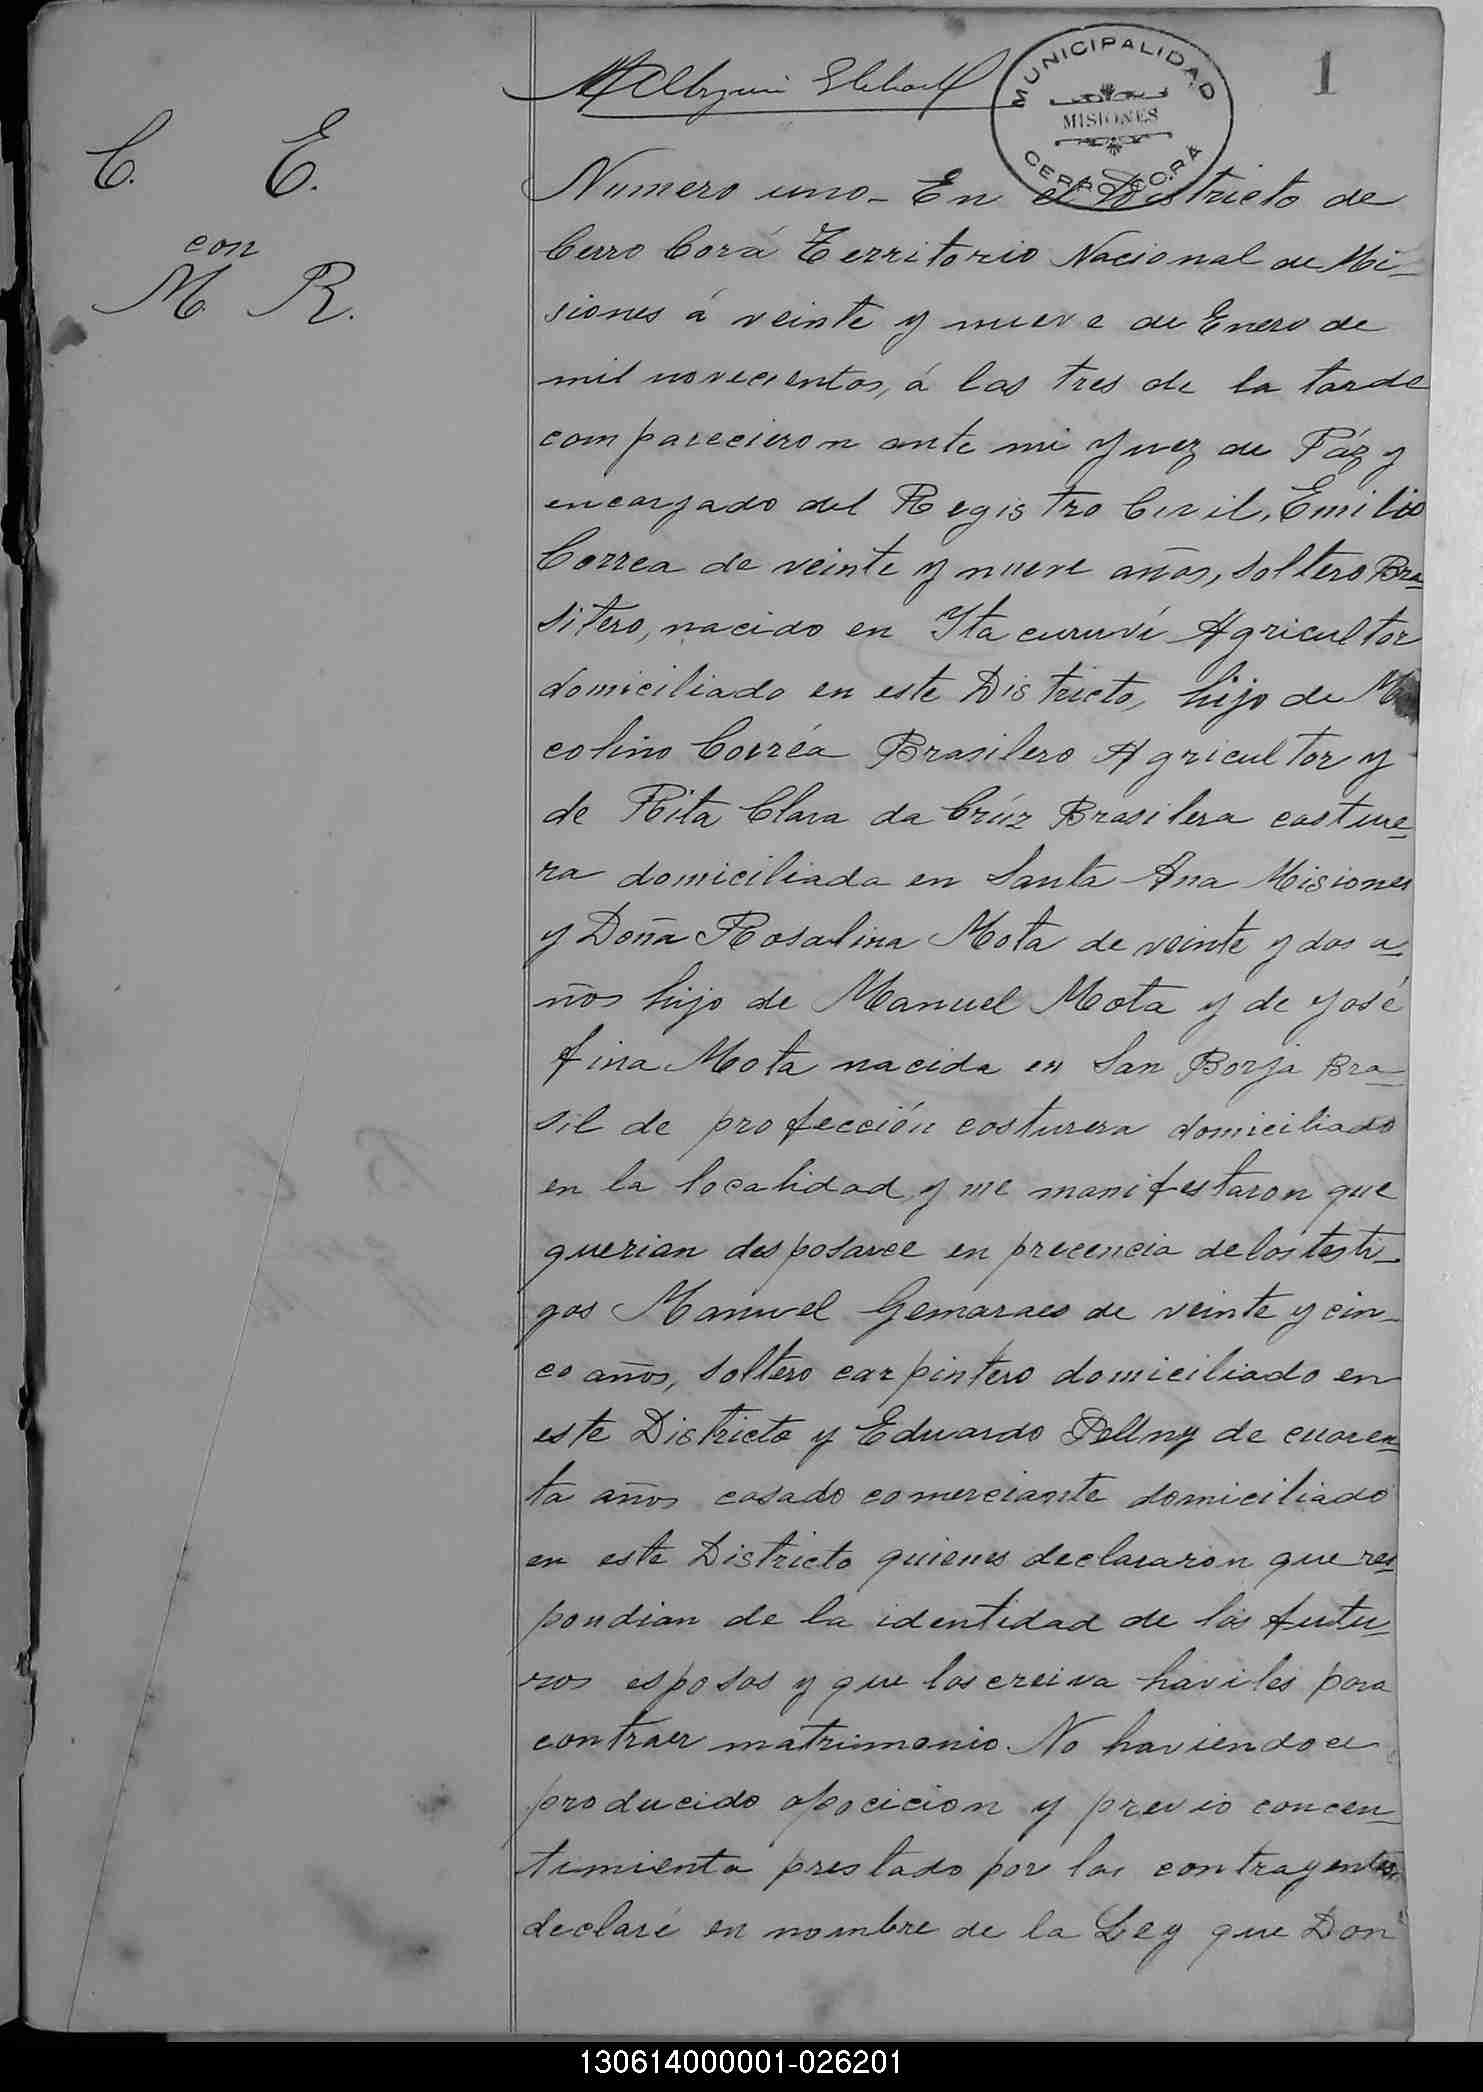 1
MUNICIPALIDAD
MISIONES
CERRO CORÁ
C. E.
con
M R.
Numero uno_ En el Districto de
Cerro Corá Territorio Nacional de Mi-
siones á veinte y nueve de Enero de
mil novecientos, á las tres de la tarde
comparecieron ante mi Juez de Páz y
encargado del Registro Civil, Emilio
Correa de veinte y nueve años, soltero Bra-
silero, nacido en Itacuruví Agricultor
domiciliado en este Districto, hijo de
colino Corréa Brasilero Agricultor y
de Rita Clara da Crúz Brasilera costure-
ra domiciliada en Santa Ana Misiones
y Doña Rosalina Mota de veinte y dos a-
ños hijo de Manuel Mota y de José
fina Mota nacida en San Borja Bra-
sil de profección costurera domiciliado
en la localidad, y me manifestaron que
querian desposarce en precencia de los testi-
gos Manuel Gemaraes de veinte y cin-
co años, soltero carpintero domiciliado en
este Districto y Eduardo Pellny de cuaren-
ta años casado comerciante domiciliado
en este Districto quienes declararon que res-
pondian de la identidad de los futu-
ros esposos y que los creiva haviles para
contraer matrimonio. No haviendoce
producido opocicion y previo concen-
timiento prestado por los contrayentes
declaré en nombre de la Ley que Don
130614000001-026201